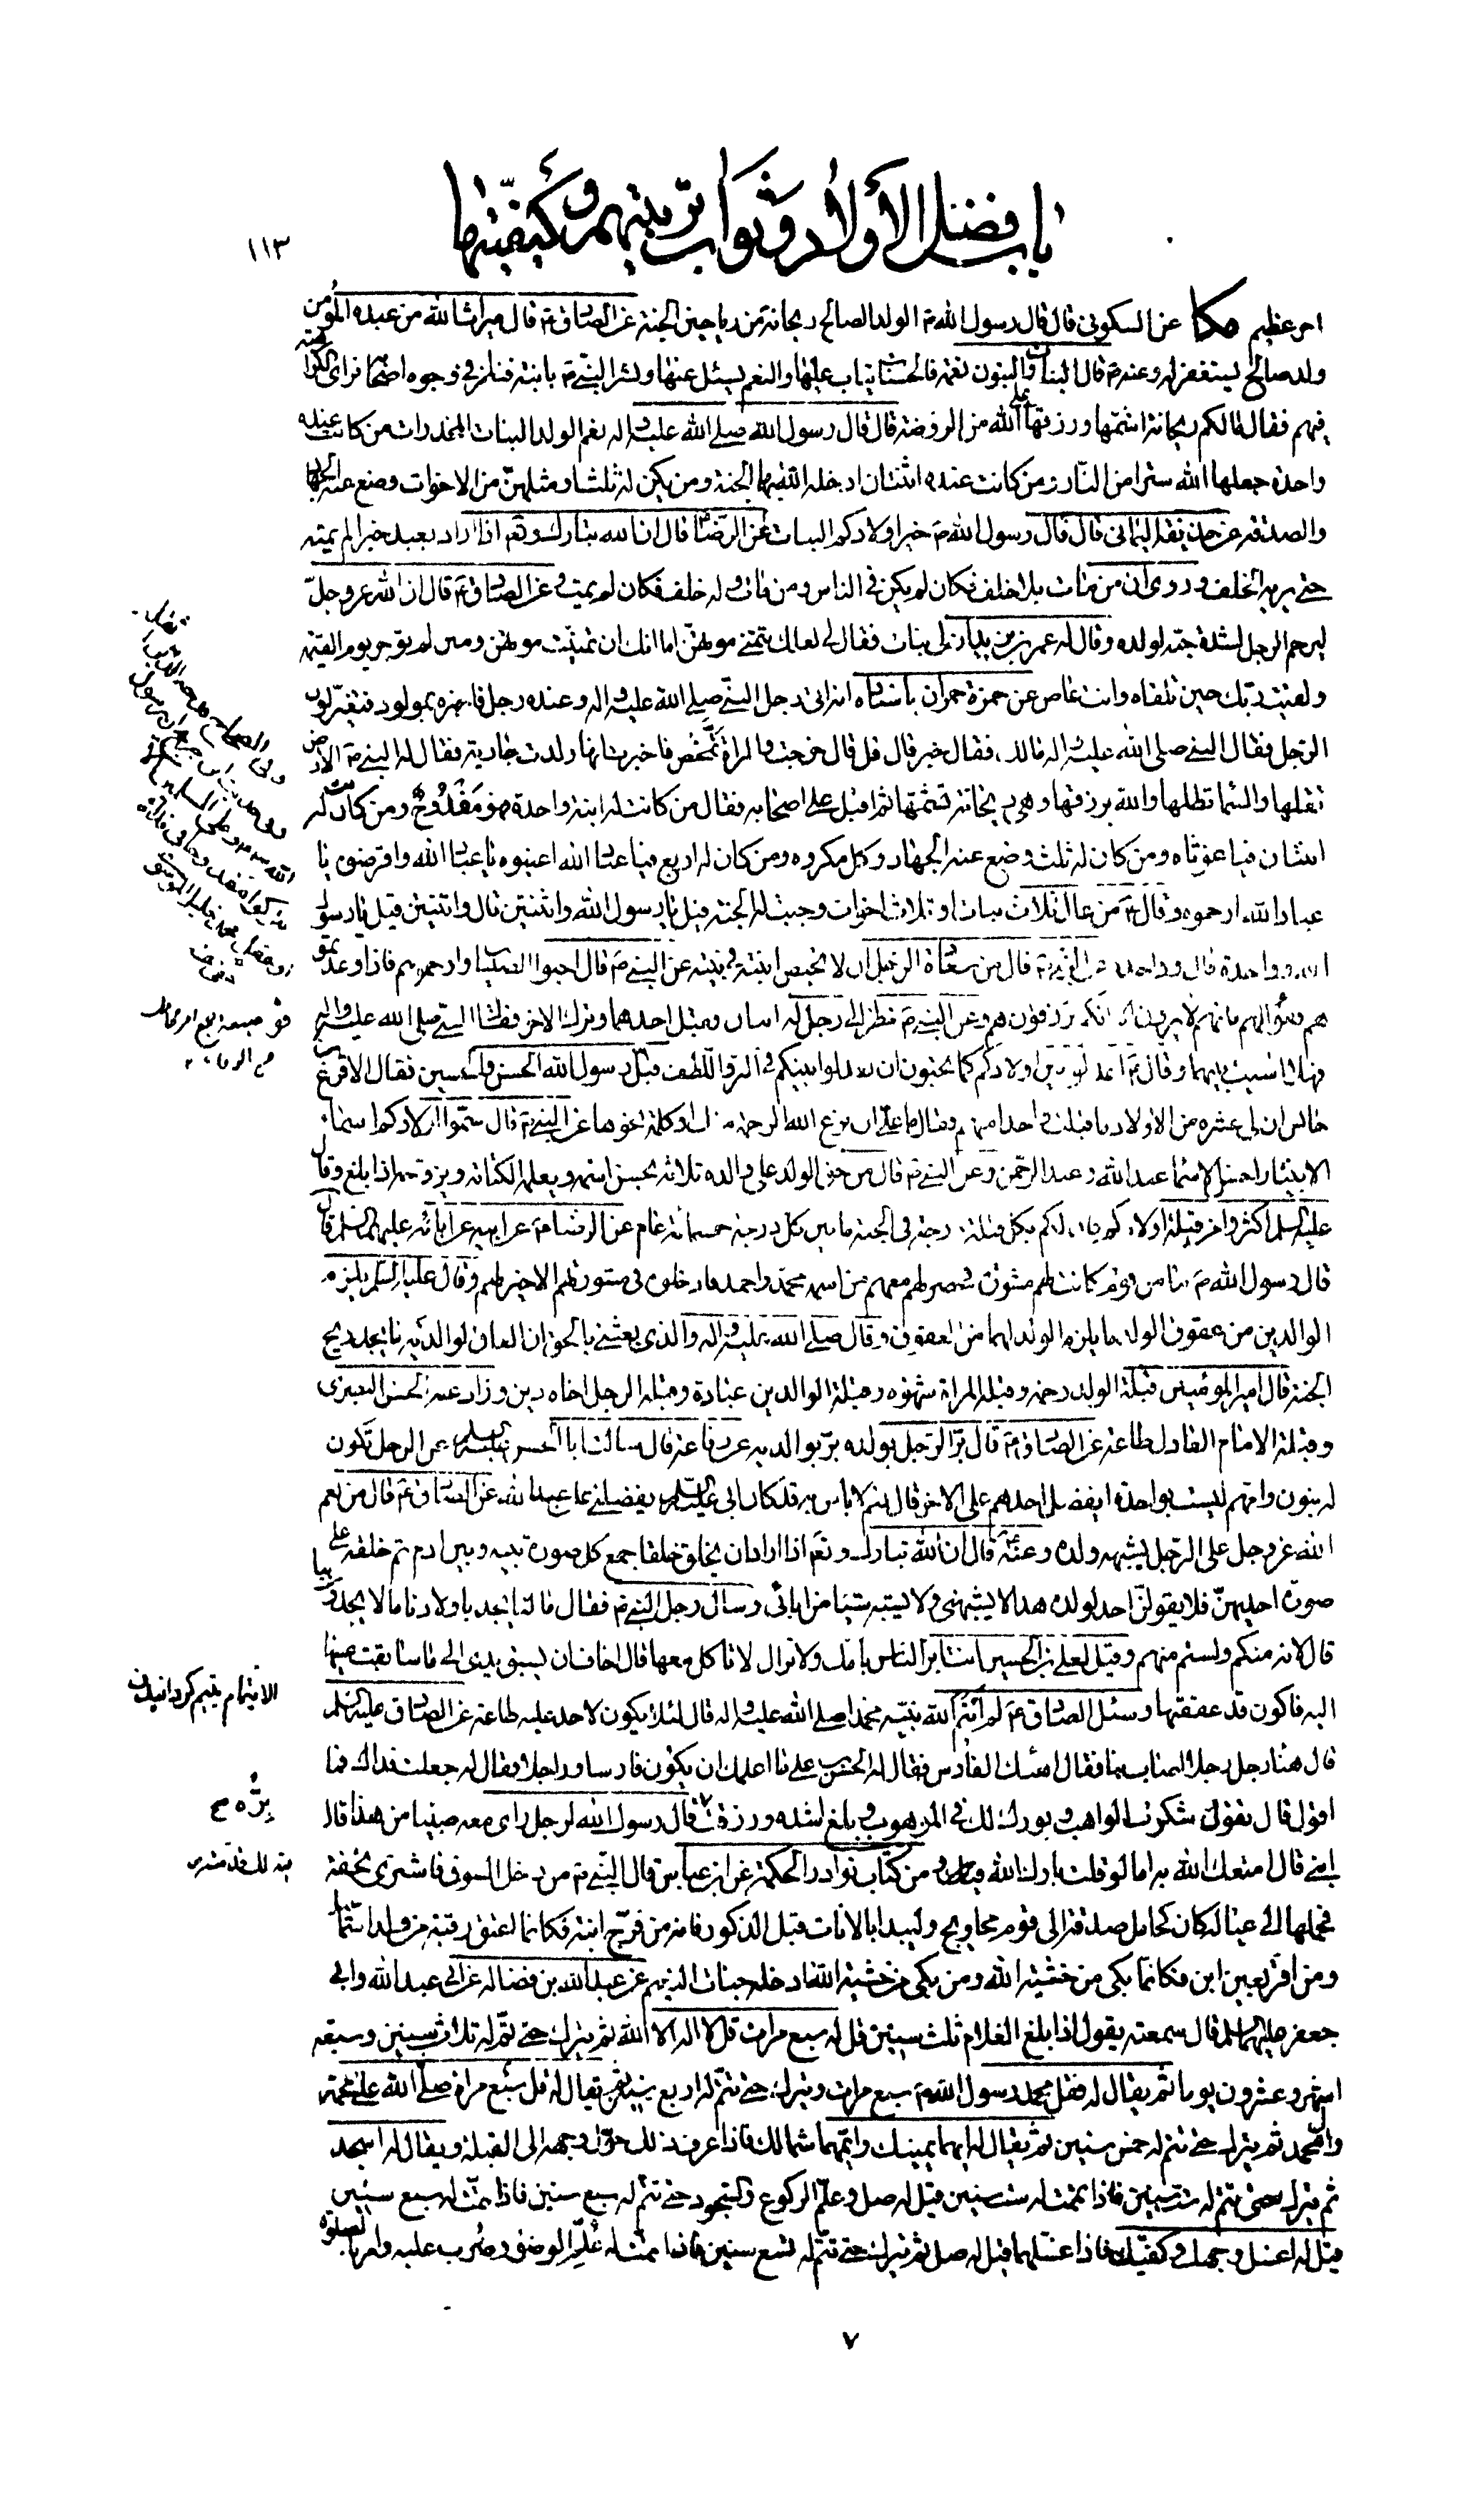 باب فضل الأولاد وثواب تربيتهم وكيفيتها
١١٣
امر عظيم مكا عن السكونى قال قال رسول الله ص الولد الصالح ريحانة من رياحين الجنة عن الصادق ع قال ميراث الله من عبده المؤمن
ولد صالح يستغفر له وعنه ع قال البنات حسنات والبنون نعمة فالحسنات يثاب عليها والنعم يسئل عنها وبشر النبى ص بابنة فنظر فى وجوه اصحابه فراى الكراهة
فيهم فقال مالكم ريحانة اشمها ورزقها على الله من الروضة قال قال رسول الله صلى الله عليه واله نعم الولد البنات المخدرات من كانت عنده
واحدة جعلها الله سترا من النار ومن كانت عنده اثنتان ادخله الله بهما الجنة ومن يكن له ثلثا او مثلهن من الاخوات وضع عنه الجهاد
والصدقة عن حذيفة اليمانى قال قال رسول الله ص خير اولادكم البنات عن الرضا ع قال ان الله تبارك وتعم اذا اراد بعبد خيرا لم يمته
حتى يريه الخلف وروى ان من مات بلا خلف فكان لم يكن فى الناس ومن مات وله خلف فكان لم يمت وعن الصادق ع قال ان الله عز وجل
ليرحم الرجل لشدة حبه لولده وقال له عمر بن يزيد ان لى بنات فقال لى لعلك تتمنى موتهن اما انك ان تمنيت موتهن ومتن لم توجر يوم القيمة
ولقيت ربك حين تلقاه وانت عاص عن حمزة حمران باسناده انه اتى رجل النبى صلى الله عليه واله وعنده رجل فاخبره بمولود فتغير لون
الرجل فقال النبى صلى الله عليه واله مالك، فقال خير قال قل قال خرجت والمراة تمخض فاخبرت انها ولدت جارية فقال له النبى ص الارض
تقلها والسما تظلها والله يرزقها وهى ريحانة تشمها ثم اقبل على اصحابه فقال من كانت له ابنة واحدة فهو مفدوح ومن كان له
ابنتان فيا غوثاه ومن كان له ثلث وضع عنه الجهاد وكل مكروه ومن كان له اربع فيا عباد الله اعينوه يا عباد الله واقرضوه يا
عباد الله ارحموه وقال ص من عال ثلاث بنات او ثلاث اخوات وجبت له الجنة قيل يا رسول الله واثنتين قال واثنتين قيل يا رسول
الله وواحدة قال وواحدة عن قال من سعادة الرجل ان لا تحيض ابنته فى بيته عن النبى ص قال احبوا الصبيان وارحموهم فاذا وعدتموهم
ففوا لهم فانهم لا يرون الا انكم ترزقونهم وعن النبى ص نظر الى رجل له ابنان فقبل احدهما وترك الاخر فقال النبى صلى الله عليه واله
فهلا اسيت بينهما وقال ع اعدلوا بين اولادكم كما تحبون ان يعدلوا بينكم فى البر واللطف قبل رسول الله الحسن والحسين فقال الاقرع بن
حابس ان لى عشرة من الاولاد ما قبلت واحدا منهم فقال ما على ان نزع الله الرحمة منك او كلمة نحوها عن النبى ص قال سموا اولادكم اسماء
الانبياء واحسن الاسما عبد الله وعبد الرحمن وعن النبى ص قال من حق الولد على والده ثلاثة يحسن اسمه ويعلمه الكتابة ويزوجه اذا بلغ وقال
عليه السلم اكثروا من قبلة اولادكم فان لكم بكل قبلة درجة فى الجنة ما بين كل درجة خمسمائة عام عن الرضا ع عن ابيه عن ابائه عليهم السلم قال
قال رسول الله ص ما من قوم كانت لهم مشورة فحضر لهم معهم من اسمه محمد واحمد فادخلوه فى مشورتهم الا خير لهم وقال عليه السلم يلزم
الوالدين من عقوق الولد ما يلزم الولد لهما من العقوق وقال صلى الله عليه واله والذى بعثنى بالحق ان العاق لوالديه ما يجد ريح
الجنة قال امير المؤمنين قبلة الولد رحمة وقبلة المراة شهوة وقبلة الوالدين عبادة وقبلة الرجل اخاه دين وزاد عنه الحسن البصرى
وقبلة الامام العادل طاعة عن الصادق ع قال بر الرجل بولده بره بوالديه عن رفاعة قال سالت ابا الحسن عليه السلم عن الرجل تكون
له بنون وامهم ليست بواحدة ايفضل احدهم على الاخر قال نعم لا باس به قد كان ابى عليه السلم يفضلنى على عبد الله عن الصادق ع قال من نعم
الله عز وجل على الرجل يشبهه ولده وعنه ع قال ان الله تبارك وتعم اذا اراد ان يخلق خلقا جمع كل صورة بينه وبين ادم ثم خلقه على
صورة احديهن فلا يقولن احد لولده هذا لا يشبهنى ولا يشبه شيئا من ابائى وسال رجل النبى ص فقال ما لنا نجد باولادنا ما لا يجدون بنا
قال لانهم منكم ولستم منهم وقيل لعلى بن الحسين انت ابر الناس بامك ولا نراك لا تاكل معها قال اخاف ان يسبق يدى الى ما سابقت عينها
اليه فاكون قد عققتها وسئل الصادق ع لم ايتم الله نبيه محمد صلى الله عليه واله قال لئلا يكون لاحد عليه طاعة عن الصادق عليه السلم
قال هنا رجل رجلا اصاب ابنا فقال اهنئك الفارس فقال له الحسن بن على ما اعلمك ان يكون فارسا او راجلا فقال له جعلت فداك فما
اقول قال تقول شكرت الواهب وبورك لك فى الموهوب وبلغ اشده ورزقت بره قال رسول الله لرجل راى معه صبيا من هذا قال
ابنى قال امتعك الله به اما لو قلت بارك الله فيه لك من كتاب نوادر الحكمة عن ابن عباس قال النبى ص من دخل السوق فاشترى تحفة
فحملها الى عياله كان كحامل صدقة الى قوم محاويج وليبدا بالاناث قبل الذكور فانه من فرح ابنة فكانما اعتق رقبة من ولد اسماعيل
ومن اقر بعين ابن فكانما بكى من خشية الله ومن بكى من خشية الله ادخله جنات النعيم عن عبد الله بن فضالة عن ابى عبد الله وابى
جعفر عليهما السلم قال سمعته يقول اذا بلغ الغلام ثلث سنين قل له سبع مرات قل لا اله الا الله ثم يترك حتى يتم له ثلاث سنين وسبعة
اشهر وعشرون يوما ثم يقال له فقل محمد رسول الله ص سبع مرات ويترك حتى يتم له اربع سنين ثم يقال له قل سبع مرات صلى الله على محمد
وال محمد ثم يترك حتى يتم له خمس سنين ثم يقال له ايهما يمينك وايهما شمالك فاذا عرف ذلك حول وجهه الى القبلة ويقال له اسجد
ثم يترك حتى يتم له ست سنين فاذا تمت له ست سنين قيل له صل وعلم الركوع والسجود حتى يتم له سبع سنين فاذا تمت له سبع سنين
قيل له اغسل وجهك وكفيك فاذا غسلهما قيل له صل ثم يترك حتى يتم له تسع سنين فاذا تمت له علم الوضوء وضرب عليه وامر بالصلوة
الايتام يتيم كردانيدن
بره م
٧